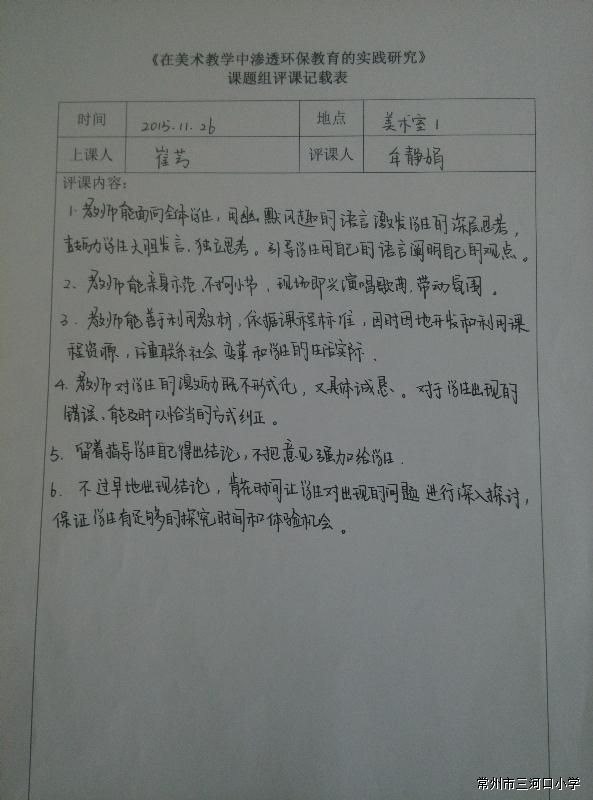 《在美术教学中渗透环保教育的实践研究》
课题组评课记载表
时间 2015.11.26 地点 美术室1
上课人 崔芸 评课人 牟静娟
评课内容：
1. 教师能面向全体学生，用幽默风趣的语言激发学生的深层思考，
鼓励学生大胆发言、独立思考。引导学生用自己的语言阐明自己的观点。
2、教师能亲身示范，不拘小节，现场即兴演唱歌曲，带动氛围。
3、教师能善于利用教材，依据课程标准，因时因地开发和利用课
程资源，注重联系社会变革和学生的生活实际.
4. 教师对学生的激励既不形式化，又具体诚恳、。对于学生出现的
错误、能及时以恰当的方式纠正。
5. 留着指导学生自己得出结论，不把意见强加给学生.
6. 不过早地出现结论，肯花时间让学生对出现的问题进行深入探讨，
保证学生有足够的探究时间和体验机会。
常州市三河口小学